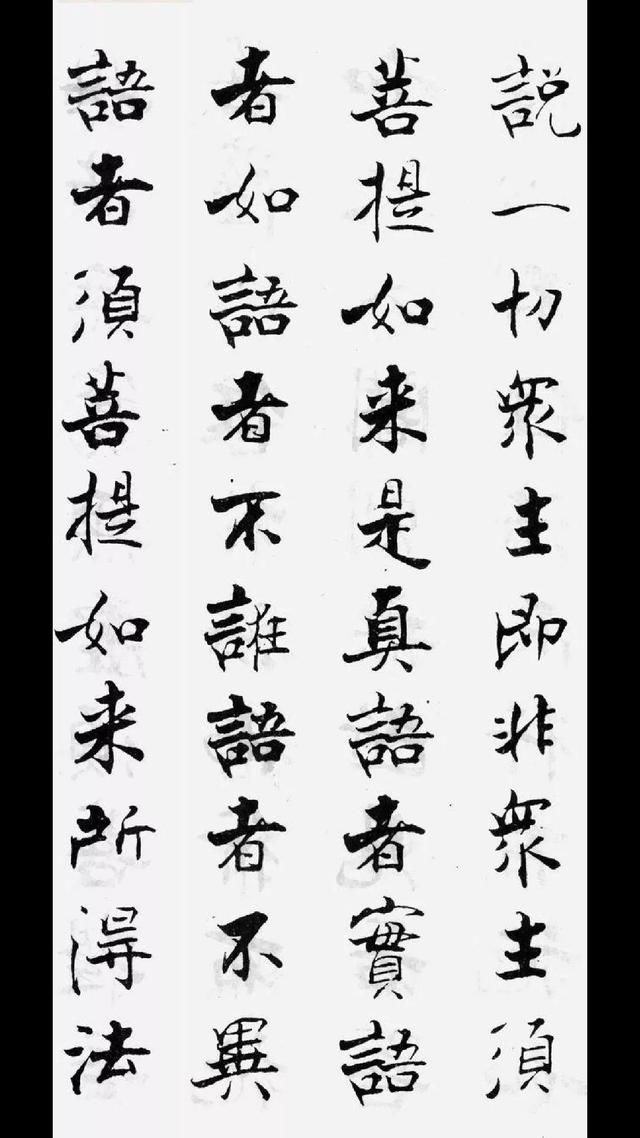 説一切衆生即非衆生須
菩提如来是真語者實語
者如語者不誑語者不異
語者須菩提如来所得法